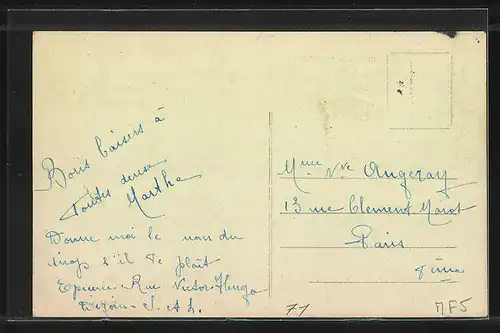 Bons baisers à
Toutes deux
Marthe
Donne moi le nom du
sirop s'il te plaît
Epicerie Rue Victor Hugo
S. et L.
Mme Vve Augeray
13 rue Clement Marot
Paris
71
MF5